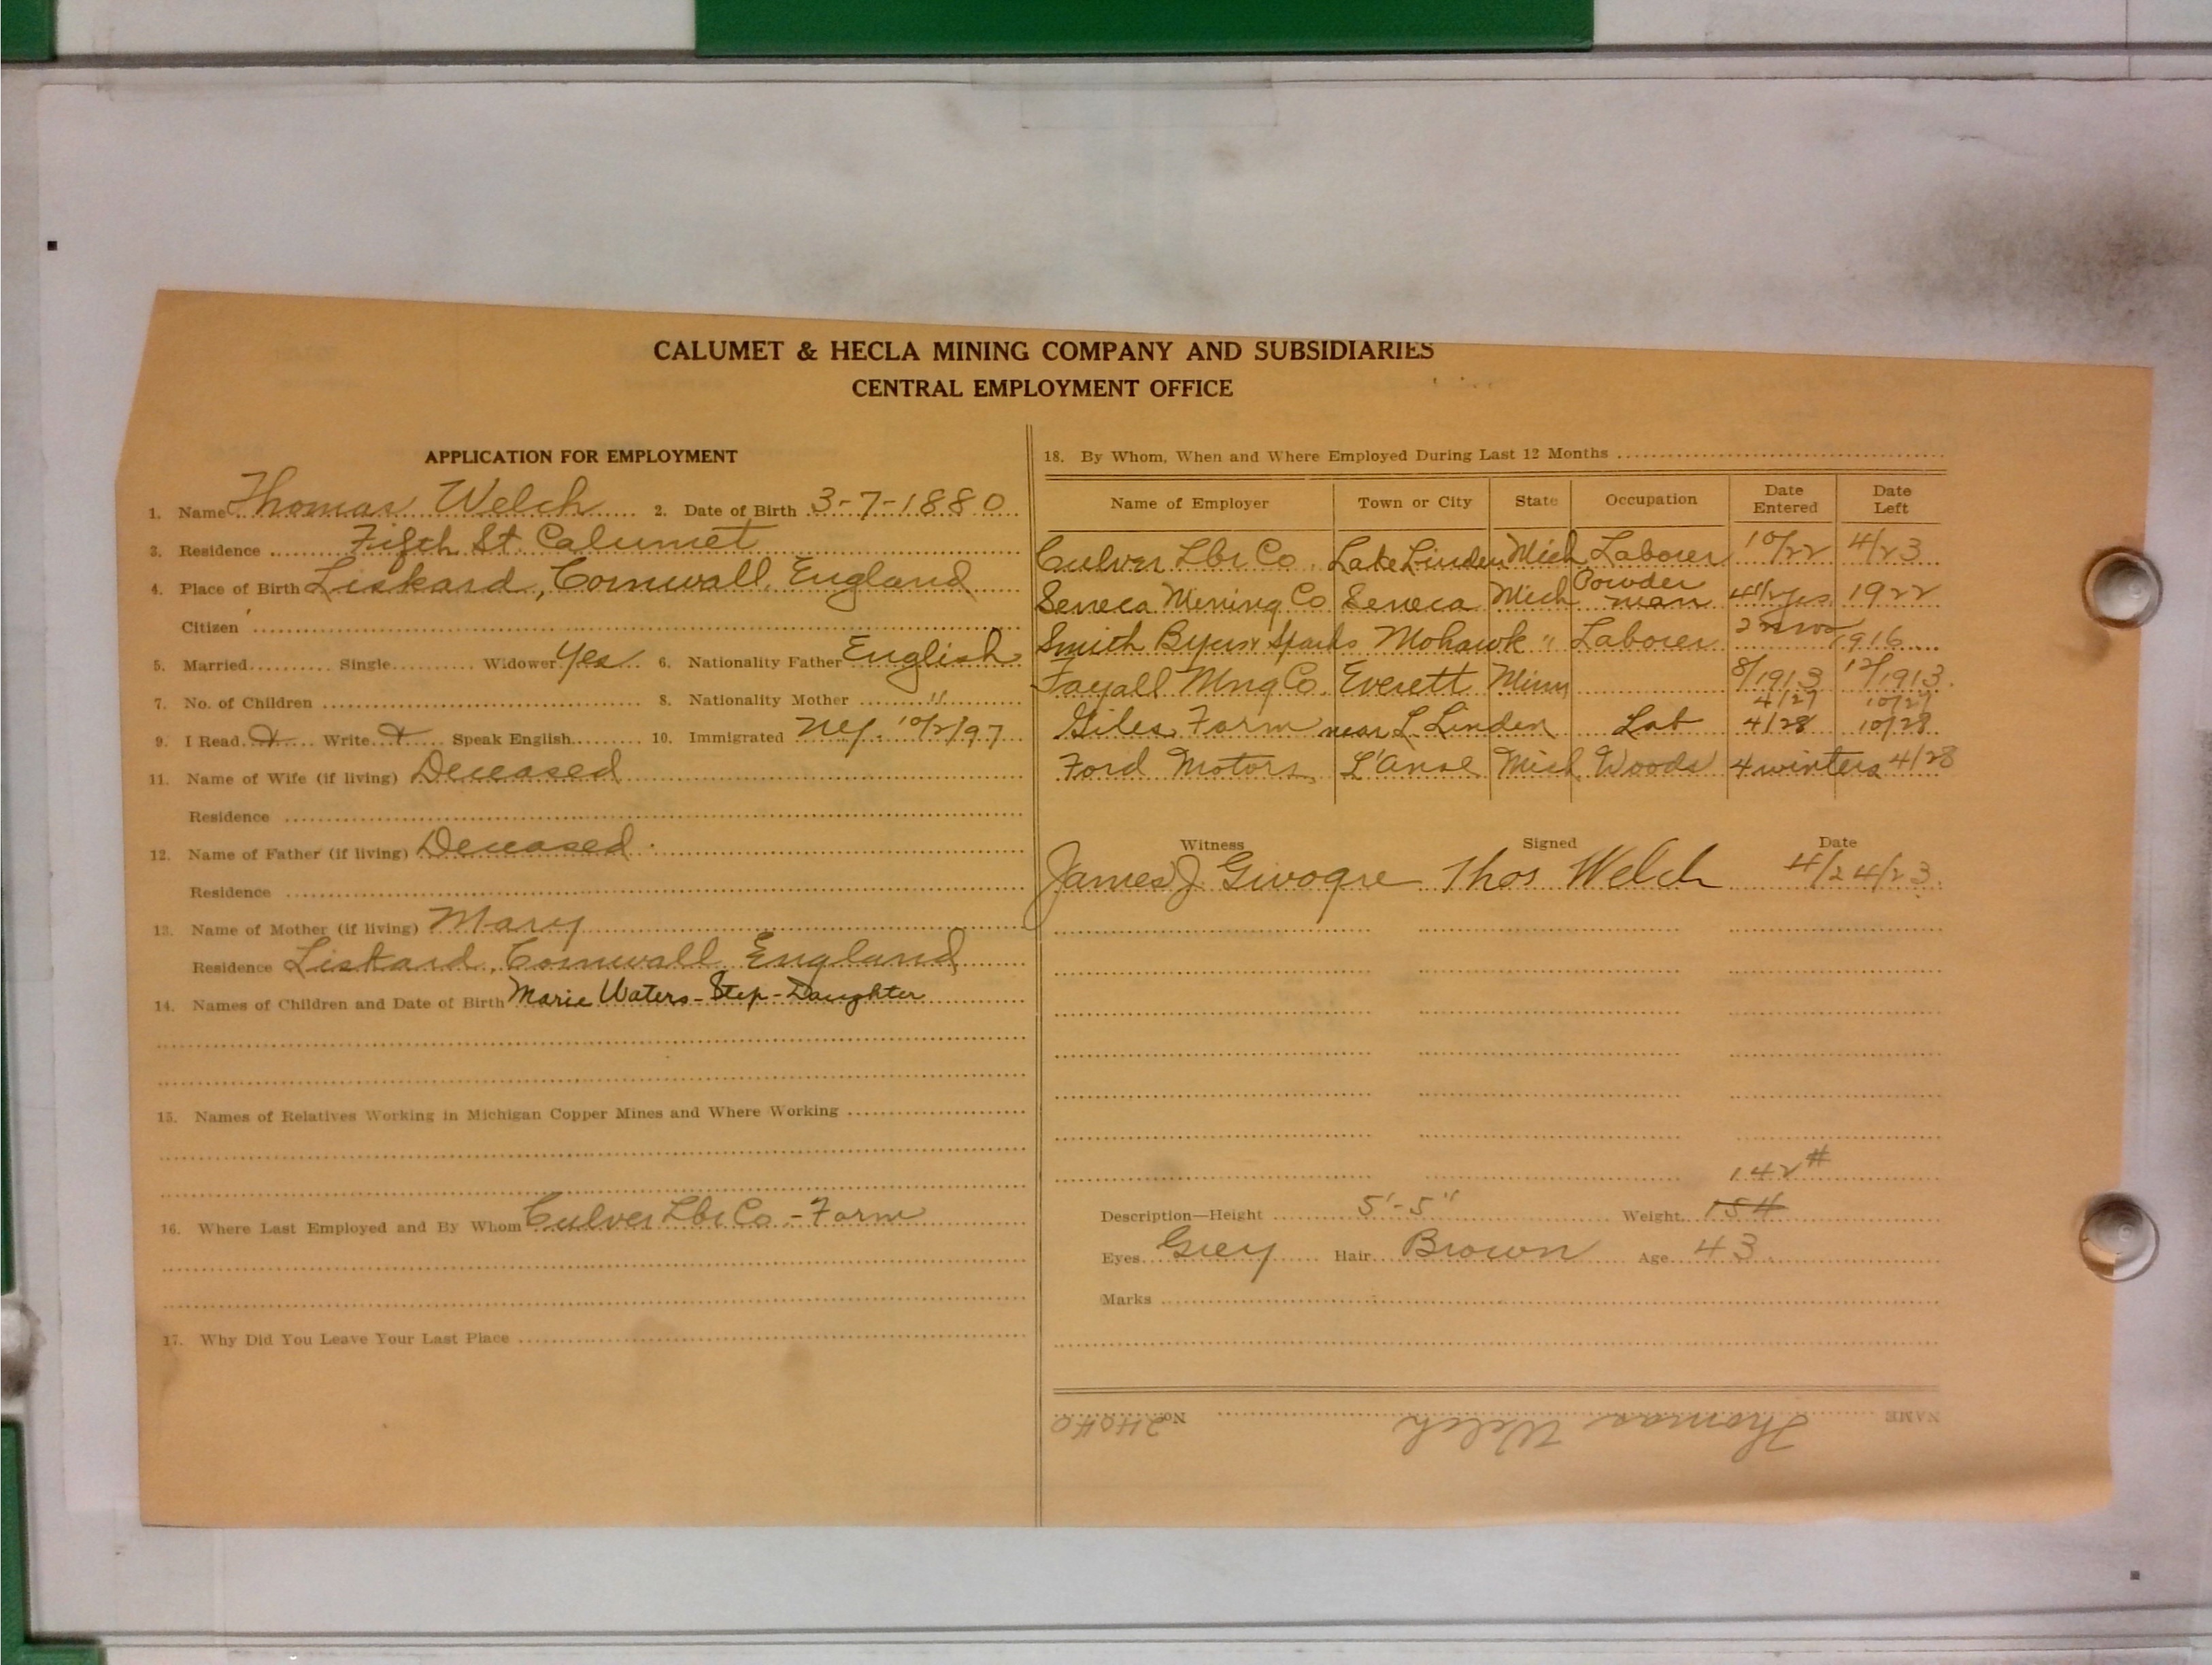 CALUMET & HECLA MINING COMPANY AND SUBSIDIARIES
CENTRAL EMPLOYMENT OFFICE
APPLICATION FOR EMPLOYMENT
1. Name Thomas Welch 2. Date of Birth 3-7-1880
3. Residence Fifth St. Calumet
4. Place of Birth Liskard, Cornwall, England
Citizen
5. Married Single Widower Yes 6. Nationality Father English
7. No. of Children 8. Nationality Mother "
9. I Read Write Speak English 10. Immigrated N.Y. 10/2/97
11. Name of Wife (if living) Deceased
Residence
12. Name of Father (if living) Deceased
Residence
13. Name of Mother (if living) Mary
Residence Liskard, Cornwall England
14. Names of Children and Date of Birth Marie Waters - Step-Daughter
15. Names of Relatives Working in Michigan Copper Mines and Where Working
16. Where Last Employed and By Whom Culver Lbr Co - Farm
17. Why Did You Leave Your Last Place
18. By Whom, When and Where Employed During Last 12 Months
Name of Employer Town or City State Occupation Date Entered Date Left
Culver Lbr Co. Lake Linden Mich Laborer 10/22 4/23
Seneca Mining Co Seneca Mich Powder man 4 1/2 yrs 1922
Smith Byers & Sparks Mohawk " Laborer 1916
Fayall Mng Co. Everett Minn 8/1913 12/1913
4/27 10/27
Giles Farm near L Linden Lab 4/28 10/28
Ford Motors, L'Anse Mich Woods 4 winters 4/28
Witness Signed Date
James J. Thos Welch 4/24/23
142#
Description—Height 5'-5" Weight 154
Eyes Grey Hair Brown Age 43
Marks
NAME Thomas Welch No. 24040